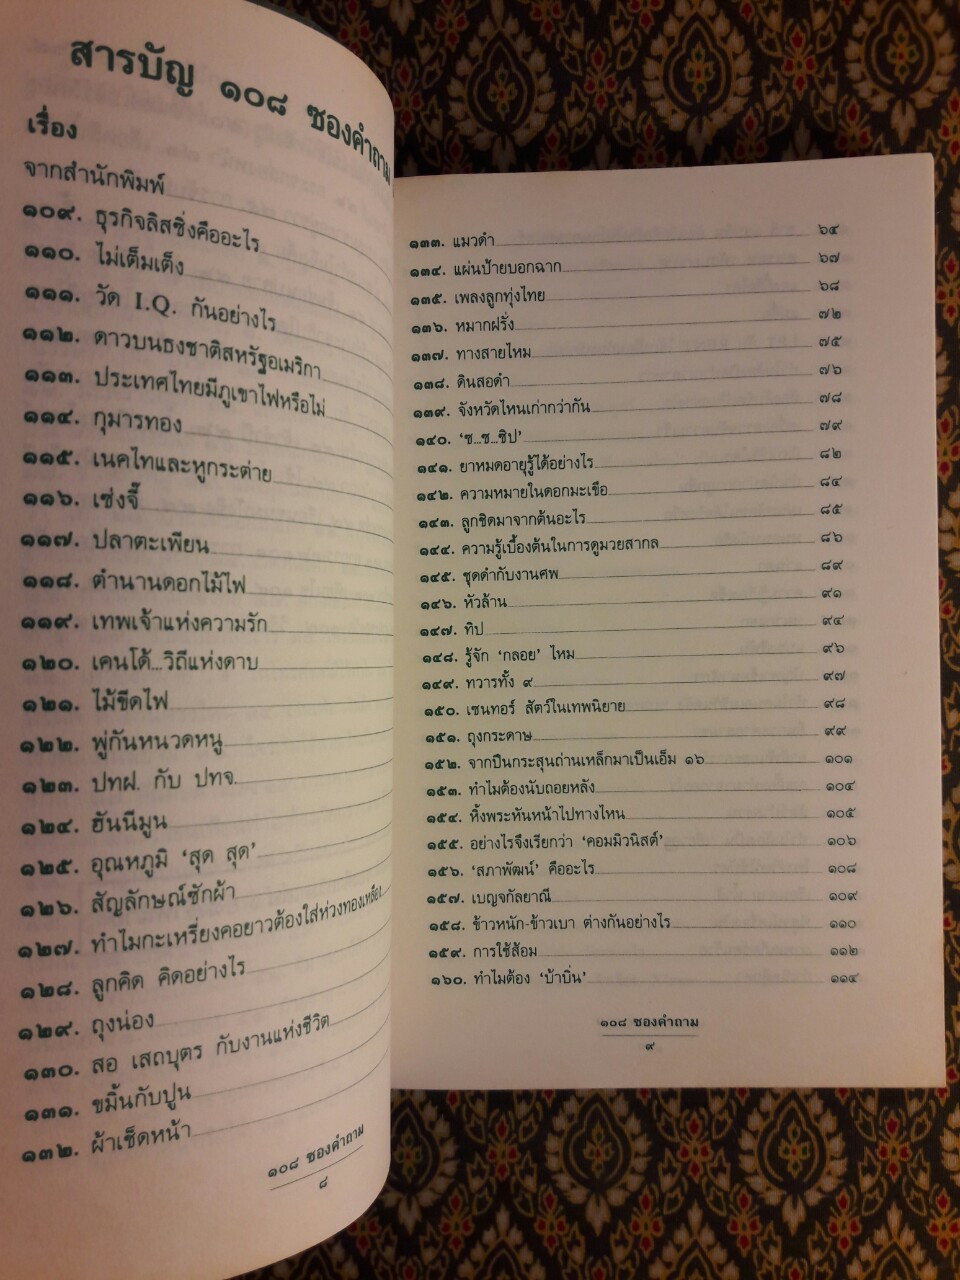 สารบัญ ๑๐๘ ซองคำถาม
เรื่อง
จากสำนักพิมพ์
๑๐๙. ธุรกิจลิสซิ่งคืออะไร
๑๑๐. ไม่เต็มเต็ง
๑๑๑. วัด I.Q. กันอย่างไร
๑๑๒. ดาวบนธงชาติสหรัฐอเมริกา
๑๑๓. ประเทศไทยมีภูเขาไฟหรือไม่
๑๑๔. กุมารทอง
๑๑๕. เนคไทและหูกระต่าย
๑๑๖. เซ่งจี๊
๑๑๗. ปลาตะเพียน
๑๑๘. ตำนานดอกไม้ไฟ
๑๑๙. เทพเจ้าแห่งความรัก
๑๒๐. เคนโด้...วิถีแห่งดาบ
๑๒๑. ไม้ขีดไฟ
๑๒๒. พู่กันหนวดหนู
๑๒๓. ปทฝ. กับ ปทจ.
๑๒๔. ฮันนีมูน
๑๒๕. อุณหภูมิ 'สุด สุด'
๑๒๖. สัญลักษณ์ซักผ้า
๑๒๗. ทำไมกะเหรี่ยงคอยาวต้องใส่ห่วงทองเหลือง
๑๒๘. ลูกคิด คิดอย่างไร
๑๒๙. ถุงน่อง
๑๓๐. สอ เสถบุตร กับงานแห่งชีวิต
๑๓๑. ขมิ้นกับปูน
๑๓๒. ผ้าเช็ดหน้า
๑๐๘ ซองคำถาม
๘
๑๓๓. แมวดำ ๖๔
๑๓๔. แผ่นป้ายบอกฉาก ๖๗
๑๓๕. เพลงลูกทุ่งไทย ๖๘
๑๓๖. หมากฝรั่ง ๗๒
๑๓๗. ทางสายไหม ๗๕
๑๓๘. ดินสอดำ ๗๖
๑๓๙. จังหวัดไหนเก่ากว่ากัน ๗๘
๑๔๐. 'ซ...ซ...ซิป' ๗๙
๑๔๑. ยาหมดอายุรู้ได้อย่างไร ๘๒
๑๔๒. ความหมายในดอกมะเขือ ๘๔
๑๔๓. ลูกชิดมาจากต้นอะไร ๘๕
๑๔๔. ความรู้เบื้องต้นในการดูมวยสากล ๘๖
๑๔๕. ชุดดำกับงานศพ ๘๙
๑๔๖. หัวล้าน ๙๑
๑๔๗. ทิป ๙๔
๑๔๘. รู้จัก 'กลอย' ไหม ๙๖
๑๔๙. ทวารทั้ง ๙ ๙๗
๑๕๐. เซนทอร์ สัตว์ในเทพนิยาย ๙๘
๑๕๑. ถุงกระดาษ ๙๙
๑๕๒. จากปืนกระสุนถ่านเหล็กมาเป็นเอ็ม ๑๖ ๑๐๑
๑๕๓. ทำไมต้องนับถอยหลัง ๑๐๔
๑๕๔. หิ้งพระหันหน้าไปทางไหน ๑๐๕
๑๕๕. อย่างไรจึงเรียกว่า 'คอมมิวนิสต์' ๑๐๖
๑๕๖. 'สภาพัฒน์' คืออะไร ๑๐๘
๑๕๗. เบญจกัลยาณี ๑๐๙
๑๕๘. ข้าวหนัก-ข้าวเบา ต่างกันอย่างไร ๑๑๐
๑๕๙. การใช้ส้อม ๑๑๒
๑๖๐. ทำไมต้อง 'บ้าบิ่น' ๑๑๔
๑๐๘ ซองคำถาม
๙